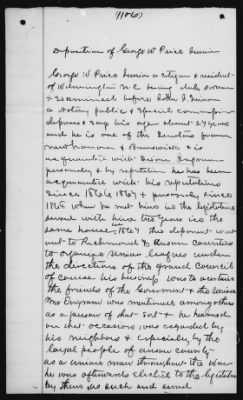 Deposition of George W Price Junior
George W Price Junior a citizen & resident
of Wilmington N C being duly sworn
& examined before John A.
a Notary public & Special Commissioner
deposes & says his age about 27 years
and he is one of the Senators from
New Hanover & Brunswick & is
acquainted with
personally & by reputation he has been
acquainted with his reputation
since 1866 1867 & personally since
1868 when he met him in the legislature
served with him two years in the
same house, 1867 this deponent went
out to Richmond & Anson Counties
to organize union leagues under
the directions of the grand Council
of course his business was to ascertain
the friends of the Government & the Union
Mr Ingram was mentioned amongst others
as a person of that sort & he learned
on that occasion was regarded by
his neighbors & especially by the
loyal people of Anson County
as a union man throughout the war
he was afterwards elected to the legislature
by them as such and served